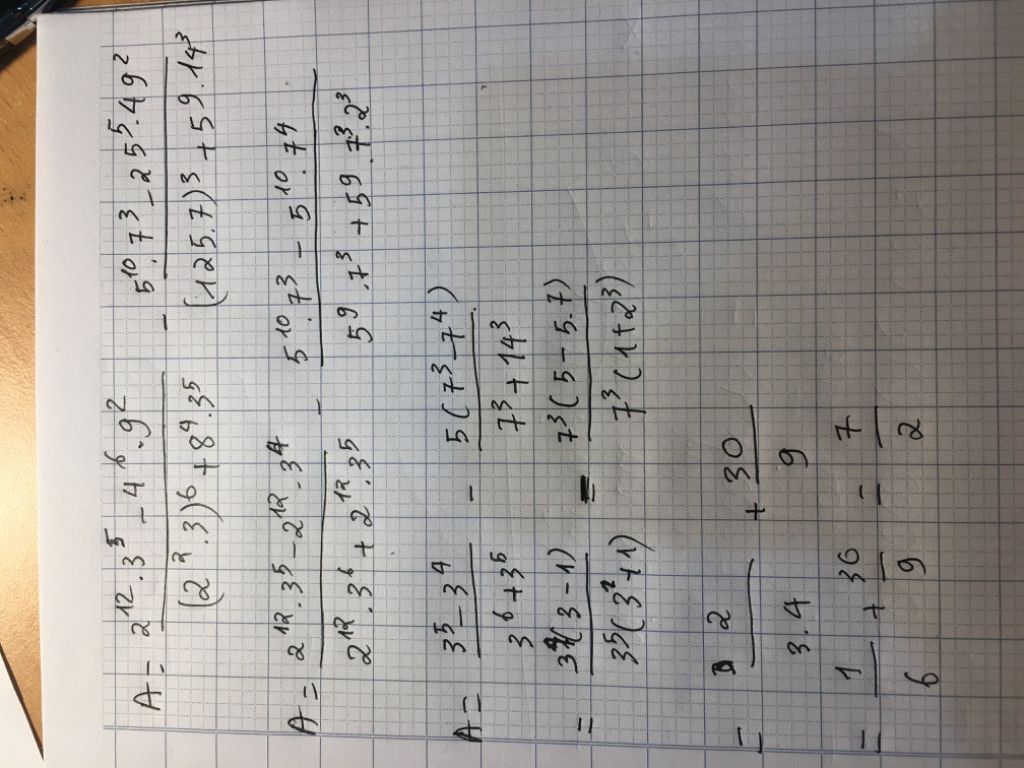 A = 2^12 . 3^5 - 4^6 . 9^2 - 5^10 . 7^3 - 25^5 . 49^2
(2^2 . 3)^6 + 8^4 . 3^5 (125.7)^3 + 59.14^3
A = 2^12 . 3^5 - 2^12 . 3^4 - 5^10 . 7^3 - 5^10 . 7^4
2^12 . 3^6 + 2^12 . 3^5 5^9 . 7^3 + 59 . 7^3 . 2^3
A = 3^5 - 3^4 - 5 (7^3 - 7^4)
3^6 + 3^5 7^3 + 14^3
= 3^4 (3 - 1) = 7^3 (5 - 5.7)
3^5 (3^2 + 1) 7^3 (1 + 2^3)
= 2 + 30
3.4 9
= 1 + 30 = 7
6 9 2